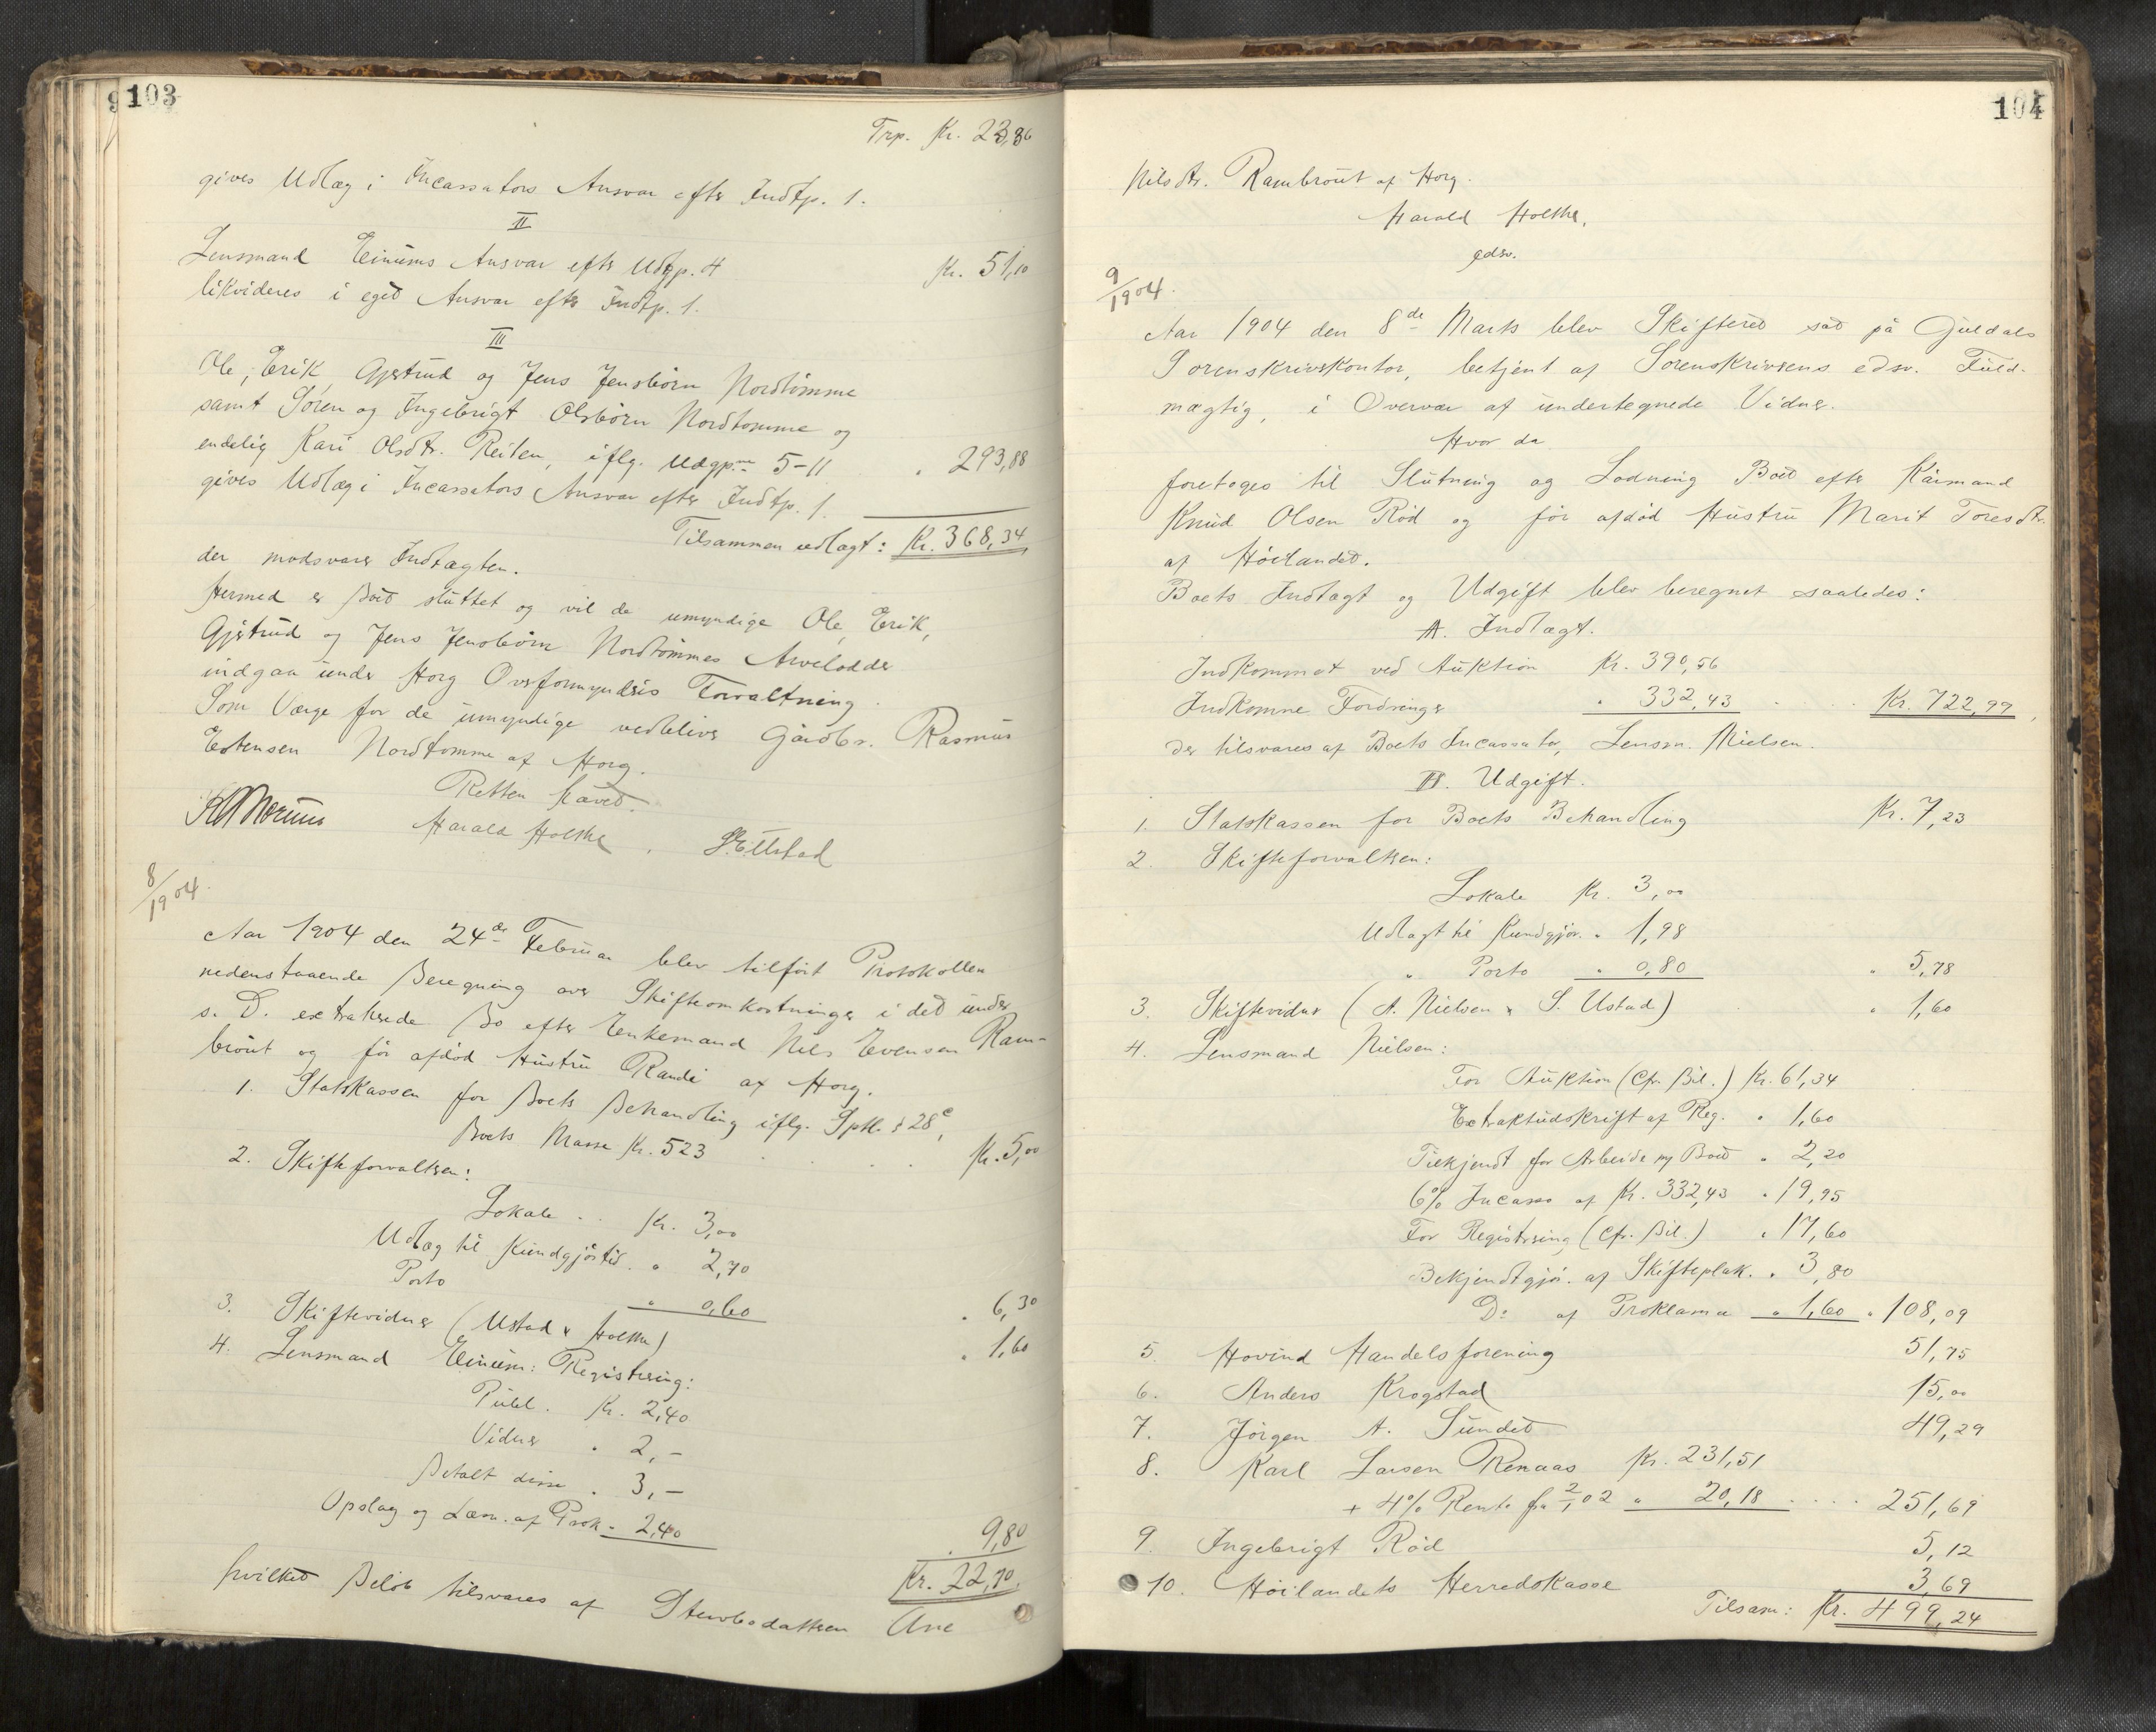 103
Trp. Kr. 23,36
gives Udlæg i Incassators Ansvar efter Indtp. 1.
II
Lensmand Einums Ansvar efter Udgp. 4 Kr. 51,10
likvideres i eget Ansvar efter Indtp. 1.
III
Ole, Erik, Gjertrud og Jens Jensbörn Nordtömme
samt Sören og Ingebrigt Olsbörn Nordtömme og
endelig Kari Olsdtr. Reiten, iflg. Udgp.ne 5-11 " 293,88
gives Udlæg i Incassators Ansvar efter Indtp. 1.
Tilsammen udlagt: Kr. 368,34
der modsvarer Indtægten.
Hermed er Boet sluttet og vil de umyndige Ole, Erik,
Gjertrud og Jens Jensbörn Nordtömmes Arvelodder
indgaa under Horg Overformynderis Forvaltning.
Som Værge for de umyndige vedbliver Gårdbr. Rasmus
Estensen Nordtömme af Horg.
Retten hævet.
Harald Holthe
8/1904.
Aar 1904 den 24de Februar blev tilfört Protokollen
nedenstaaende Beregning over Skifteomkostninger i det under
s. D. extraherede Bo efter Enkemand Nils Evensen Ram-
bröut og för afdöd Hustru Randi af Horg.
1. Statskassen for Boets Behandling iflg. Sptl. § 28 c,
Boets Masse Kr. 523 . . . . Kr. 5,00
2. Skifteforvalteren:
Lokale . . Kr. 3,00
Udlæg til Kundgjörels. " 2,70
Porto " 0,60 " 6,30
3. Skiftevidner (Ustad & Holthe) " 1,60
4. Lensmand Einum: Registrering:
Publ. Kr. 2,40
Vidner " 2,-
Betalt disse " 3,-
Opslag og Læsn. af Prok. " 2,40 " 9,80
Kr. 22,70
hvilket Belöb tilsvares af Stervbodatteren Ane
104
Nilsdtr. Rambröut af Horg.
Harald Holthe,
edsv.
9/1904.
Aar 1904 den 8de Marts blev Skifteret sat på Guldals
Sorenskriverkontor, betjent af Sorenskriverens edsv. Fuld-
mægtig, i Overvær af undertegnede Vidner.
Hvor da
foretoges til Slutning og Lodning Boet efter Kårmand
Knud Olsen Röd og för afdöd Hustru Marit Toresdtr.
af Höilandet.
Boets Indtægt og Udgift blev beregnet saaledes:
A. Indtægt.
Indkommet ved Auktion Kr. 390,56
Indkomne Fordringer " 332,43 . . . Kr. 722,99,
der tilsvares af Boets Incassator, Lensm. Nielsen.
B. Udgift.
1. Statskassen for Boets Behandling Kr. 7,23
2. Skifteforvalteren:
Lokale Kr. 3,00
Udlagt til Kundgjör. " 1,98
" Porto " 0,80 " 5,78
3. Skiftevidner (A. Nielsen & S. Ustad) " 1,60
4. Lensmand Nielsen:
For Auktion (Cfr. Bil.) Kr. 61,34
Extraktudskrift af Reg. " 1,60
Tilkjendt for Arbeide m Boet " 2,20
6% Incasso af Kr. 332,43 " 19,95
For Registrering (Cfr. Bil.) " 17,60
Bekjendtgjör. af Skifteplak. " 3,80
Do af Proklama " 1,60 " 108,09
5. Hovind Handelsforening 51,75
6. Anders Krogstad 15,00
7. Jörgen A. Sundet 49,29
8. Karl Larsen Renaas Kr. 231,51
+ 4% Rente fra 2/1 02 " 20,18 . . . . 251,69
9. Ingebrigt Röd 5,12
10. Höilandets Herredskasse 3,69
Tilsam: Kr. 499,24